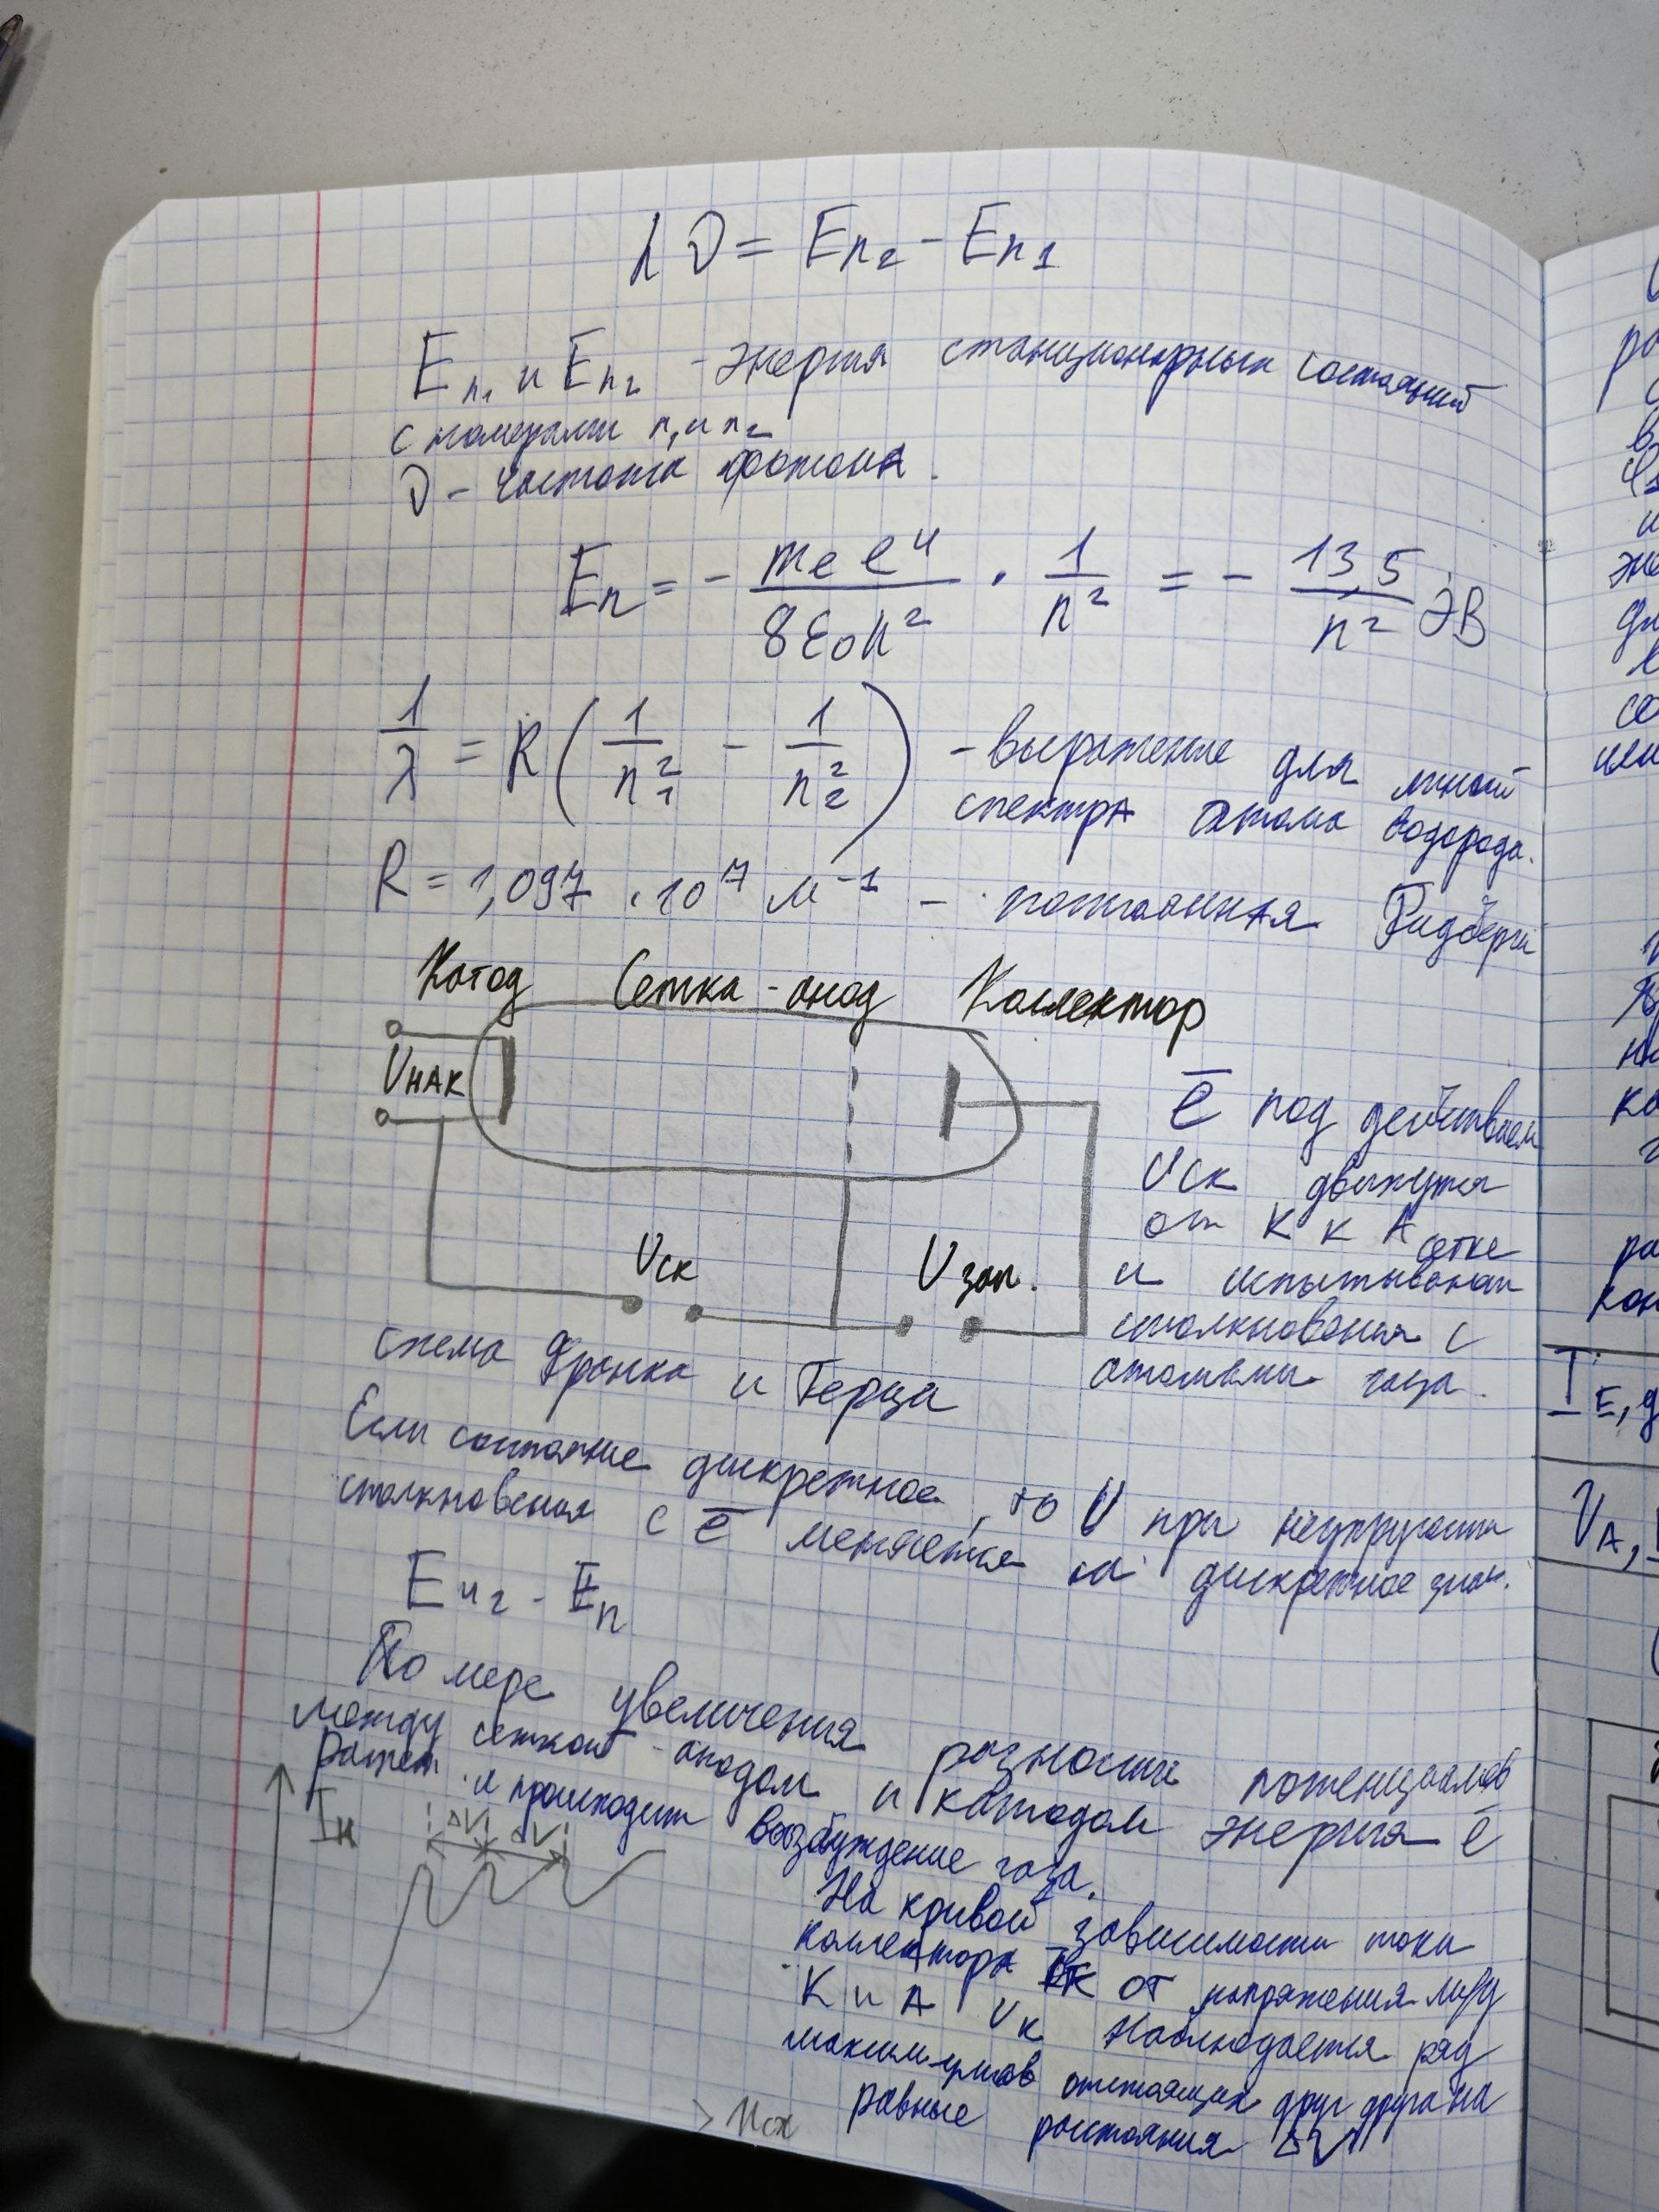 hν = En₂ - En₁
En₁ и En₂ - энергия стационарных состояний
с номерами n₁ и n₂
ν - частота фотона.
En = - mee⁴/8ε₀h² · 1/n² = - 13,5/n² эВ
1/λ = R(1/n₁² - 1/n₂²) - выражение для линий
спектра атома водорода.
R = 1,097 · 10⁷ м⁻¹ - постоянная Ридберга
Катод Сетка-анод Коллектор
Uнак
ē под действием
Uск движутся
от К к А сетке
и испытывают
столкновения с
атомами газа.
Uск Uзап.
схема Франка и Герца
Если состояние дискретное, то U при неупругости
столкновения с ē меняется на дискретное знач.
En₂ - En
По мере увеличения разности потенциалов
между сеткой-анодом и катодом энергия ē
растет и происходит возбуждение газа.
Iк
ΔV ΔV
На кривой зависимости тока
коллектора от напряжения м/у
К и А Uк наблюдается ряд
максимумов отстоящих друг друга на
равные расстояния ΔV
Uск
I E, д
VA,